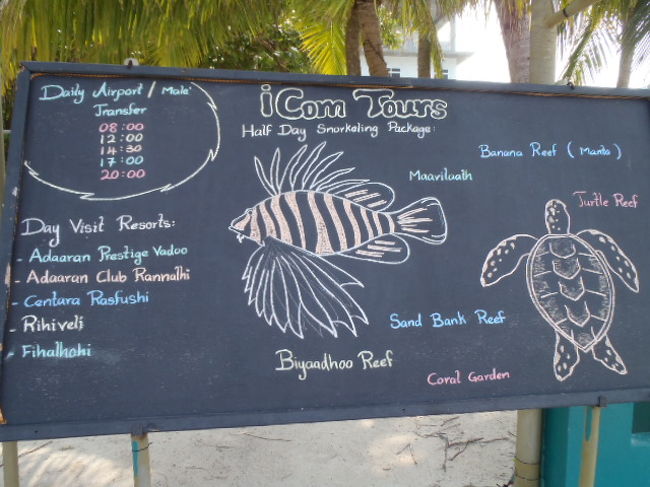 Daily Airport / Male'
Transfer
08:00
12:00
14:30
17:00
20:00
iCom Tours
Half Day Snorkeling Package:
Maavilaath
Banana Reef ( Manta )
Turtle Reef
Day Visit Resorts:
- Adaaran Prestige Vadoo
- Adaaran Club Rannalhi
- Centara Rasfushi
- Rihiveli
- Fihalhohi
Sand Bank Reef
Biyaadhoo Reef
Coral Garden